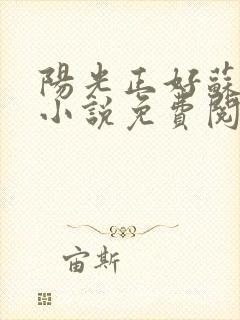 陽光正好蘇
小說免費閱
宙斯